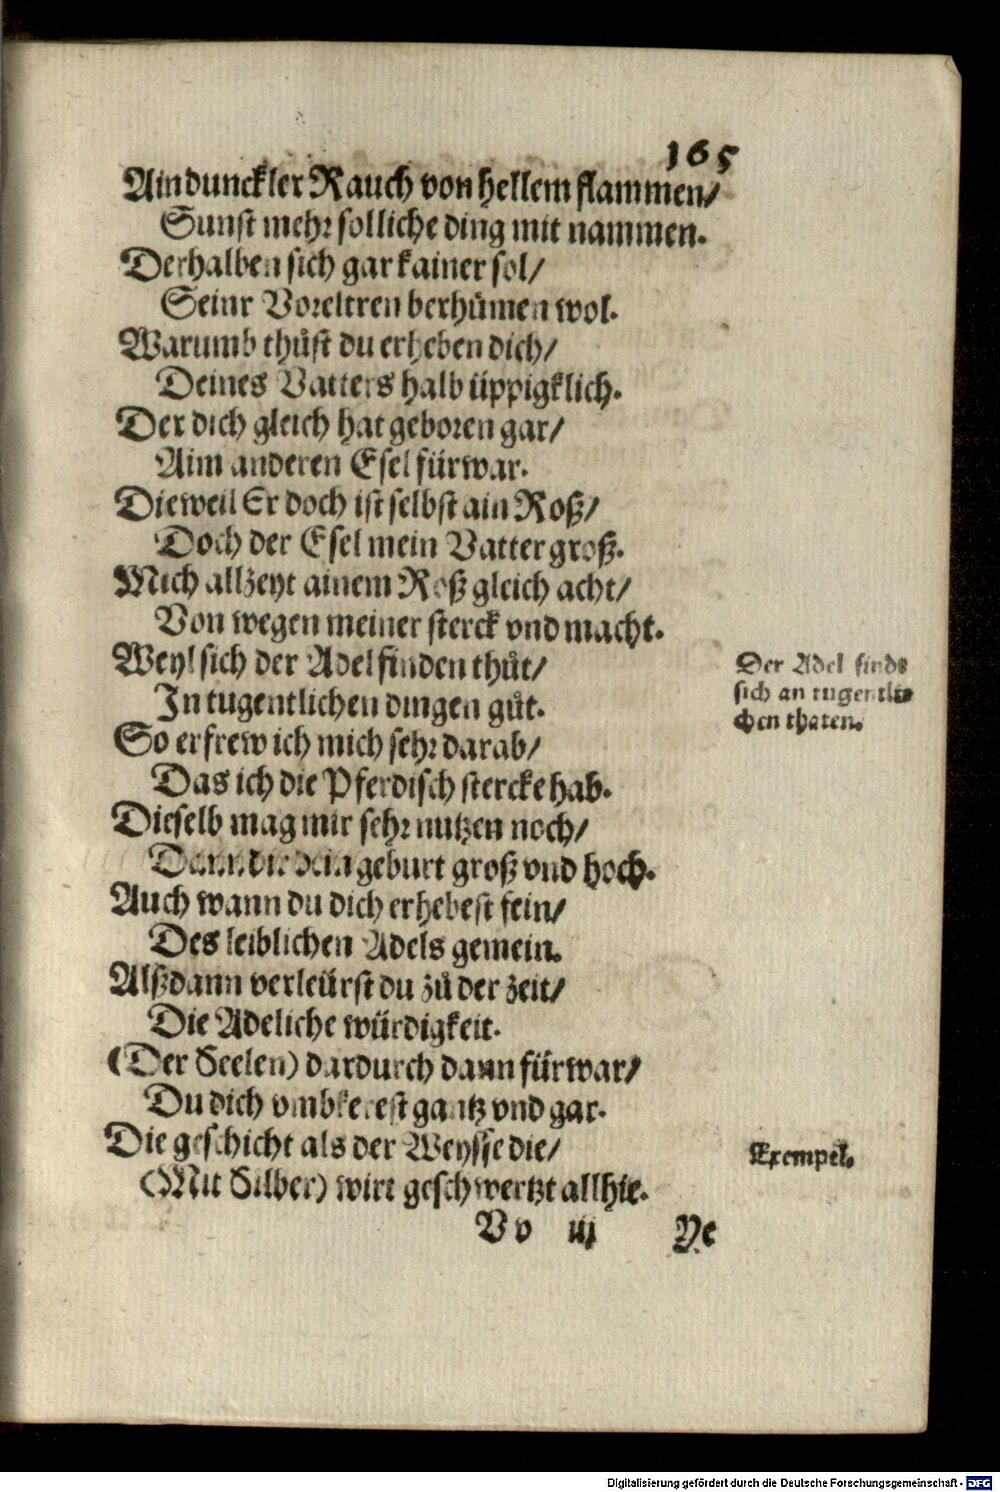 165
Ain dunckler Rauch von hellem flammen/
Sunst mehr solliche ding mit nammen.
Derhalben sich gar kainer sol/
Seinr Voreltren berhümen wol.
Warumb thůst du erheben dich/
Deines Vatters halb üppigklich.
Der dich gleich hat geboren gar/
Aim anderen Esel fürwar.
Dieweil Er doch ist selbst ain Roß/
Doch der Esel mein Vatter groß.
Mich allzeyt ainem Roß gleich acht/
Von wegen meiner sterck vnd macht.
Weyl sich der Adel finden thůt/
In tugentlichen dingen gůt.
So erfrew ich mich sehr darab/
Das ich die Pferdisch stercke hab.
Dieselb mag mir sehr nutzen noch/
Dann die dein geburt groß vnd hoch.
Auch wann du dich erhebest fein/
Des leiblichen Adels gemein.
Alßdann verleürst du zů der zeit/
Die Adeliche würdigkeit.
(Der Seelen) dardurch dann fürwar/
Du dich vmbkerest gantz vnd gar.
Die geschicht als der Weysse die/
(Mit Silber) wirt geschwertzt allhie.
Vv iij Ye
Der Adel finds
sich an tugentli-
chen thaten.
Exempel.
Digitalisierung gefördert durch die Deutsche Forschungsgemeinschaft - DFG